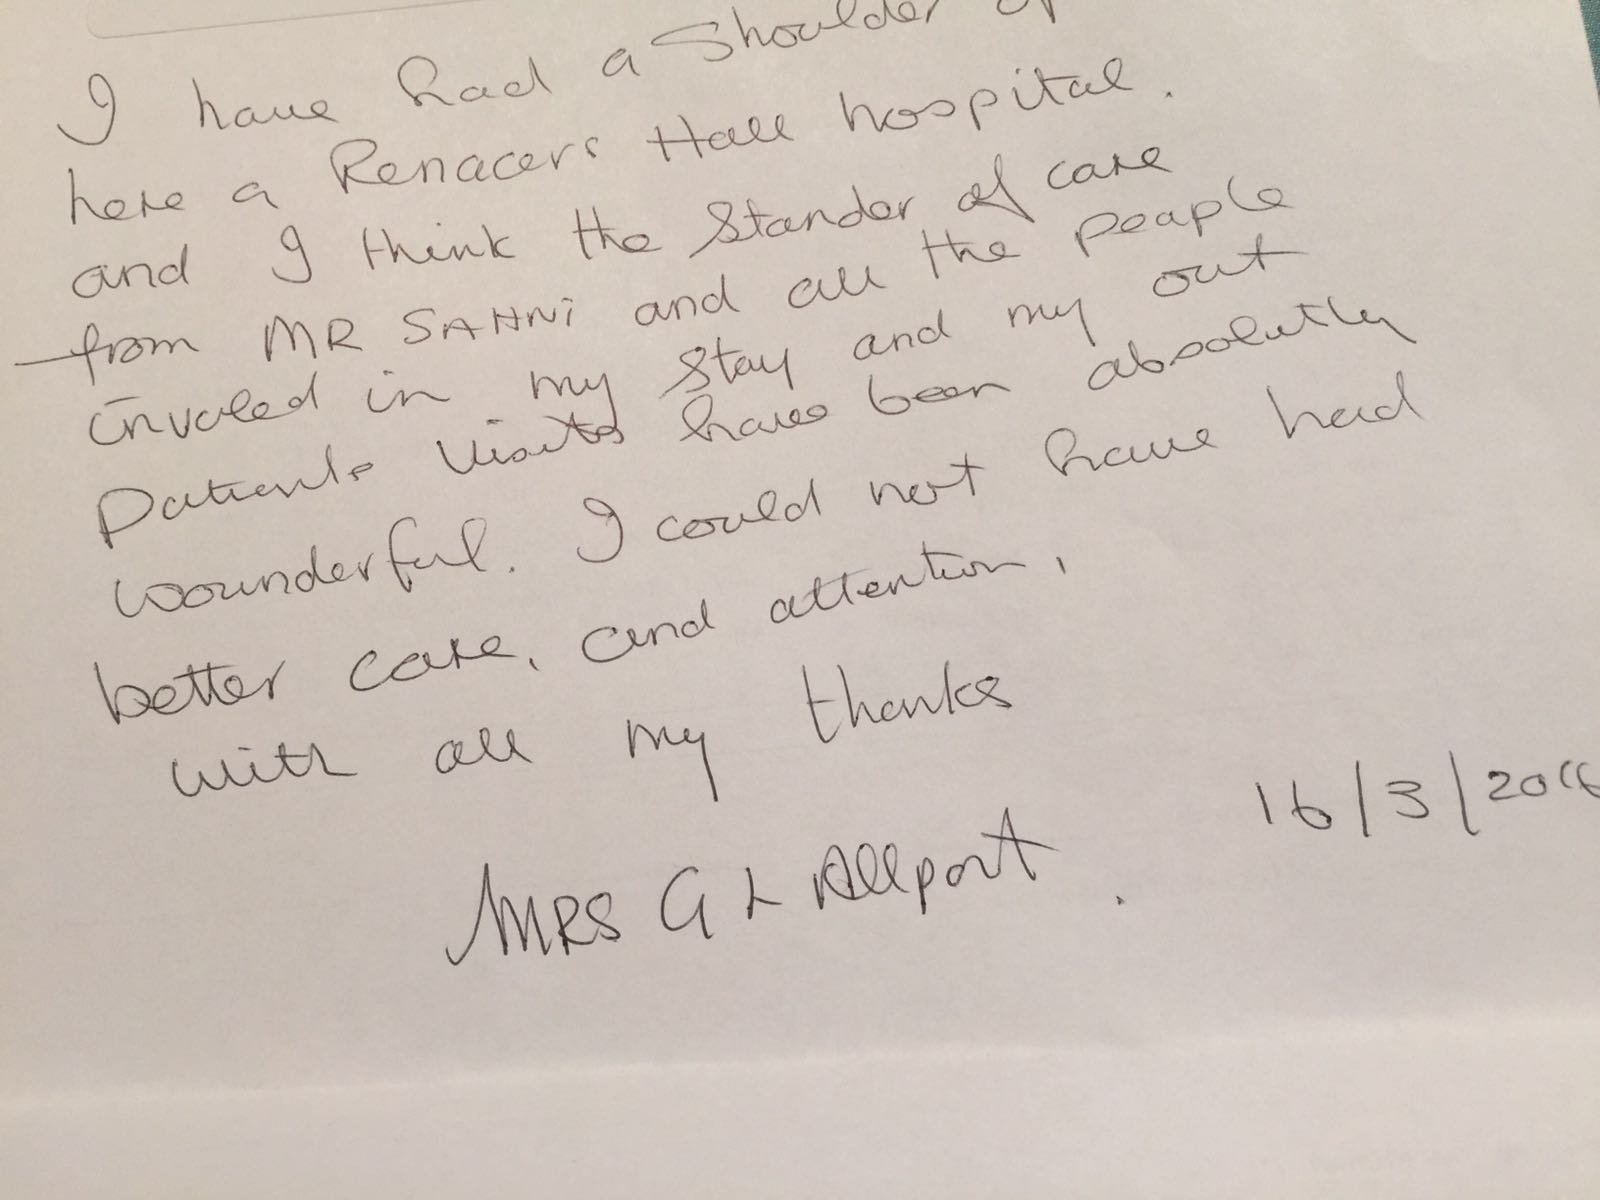 I have had a Shoulder op
here a Renacers Hall hospital.
and I think the Stander of care
from MR SAHNI and all the peaple
involed in my stay and my out
Patients Visits have been absolutly
wounderful. I could not have had
better care, and attention,
with all my thanks
16/3/2016
MRS G L Allport.